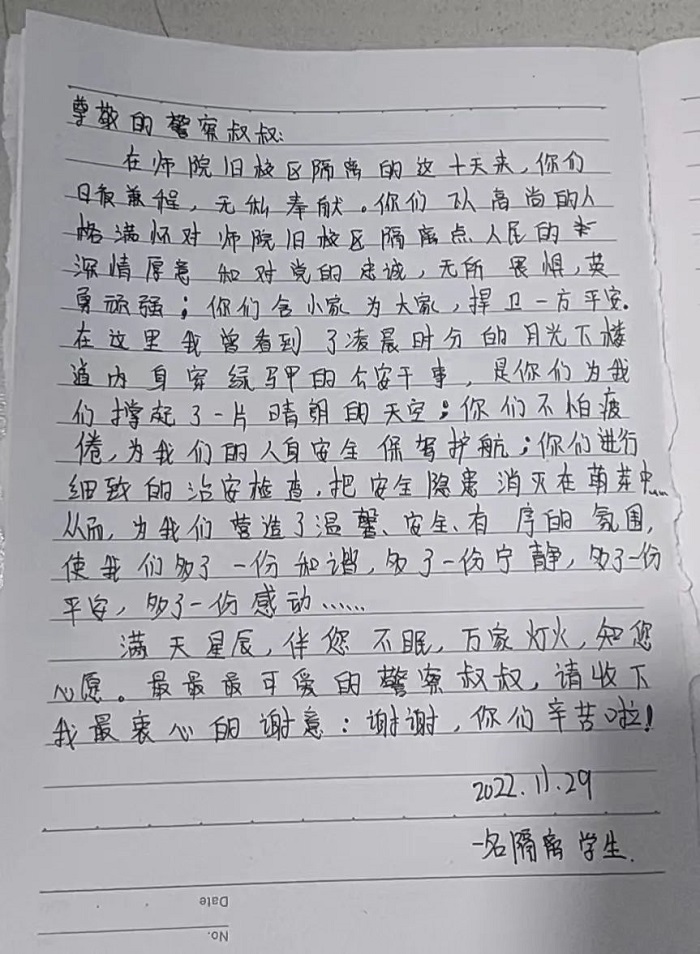 尊敬的警察叔叔:
在师院旧校区隔离的这十天来，你们
日夜兼程，无私奉献。你们以高尚的人
格满怀对师院旧校区隔离点人民的
深情厚意和对党的忠诚，无所畏惧，英
勇顽强；你们舍小家为大家，捍卫一方平安.
在这里我曾看到了凌晨时分的月光下楼
道内身穿绿马甲的公安干事，是你们为我
们撑起了一片晴朗的天空；你们不怕疲
倦，为我们的人身安全保驾护航；你们进行
细致的治安检查，把安全隐患消灭在萌芽中……
从而，为我们营造了温馨、安全、有序的氛围，
使我们多了一份和谐，多了一份宁静，多了一份
平安，多了一份感动……
满天星辰，伴您不眠，万家灯火，知您
心愿。最最最可爱的警察叔叔，请收下
我最衷心的谢意：谢谢，你们辛苦啦！
2022.11.29
一名隔离学生.
Date
No.